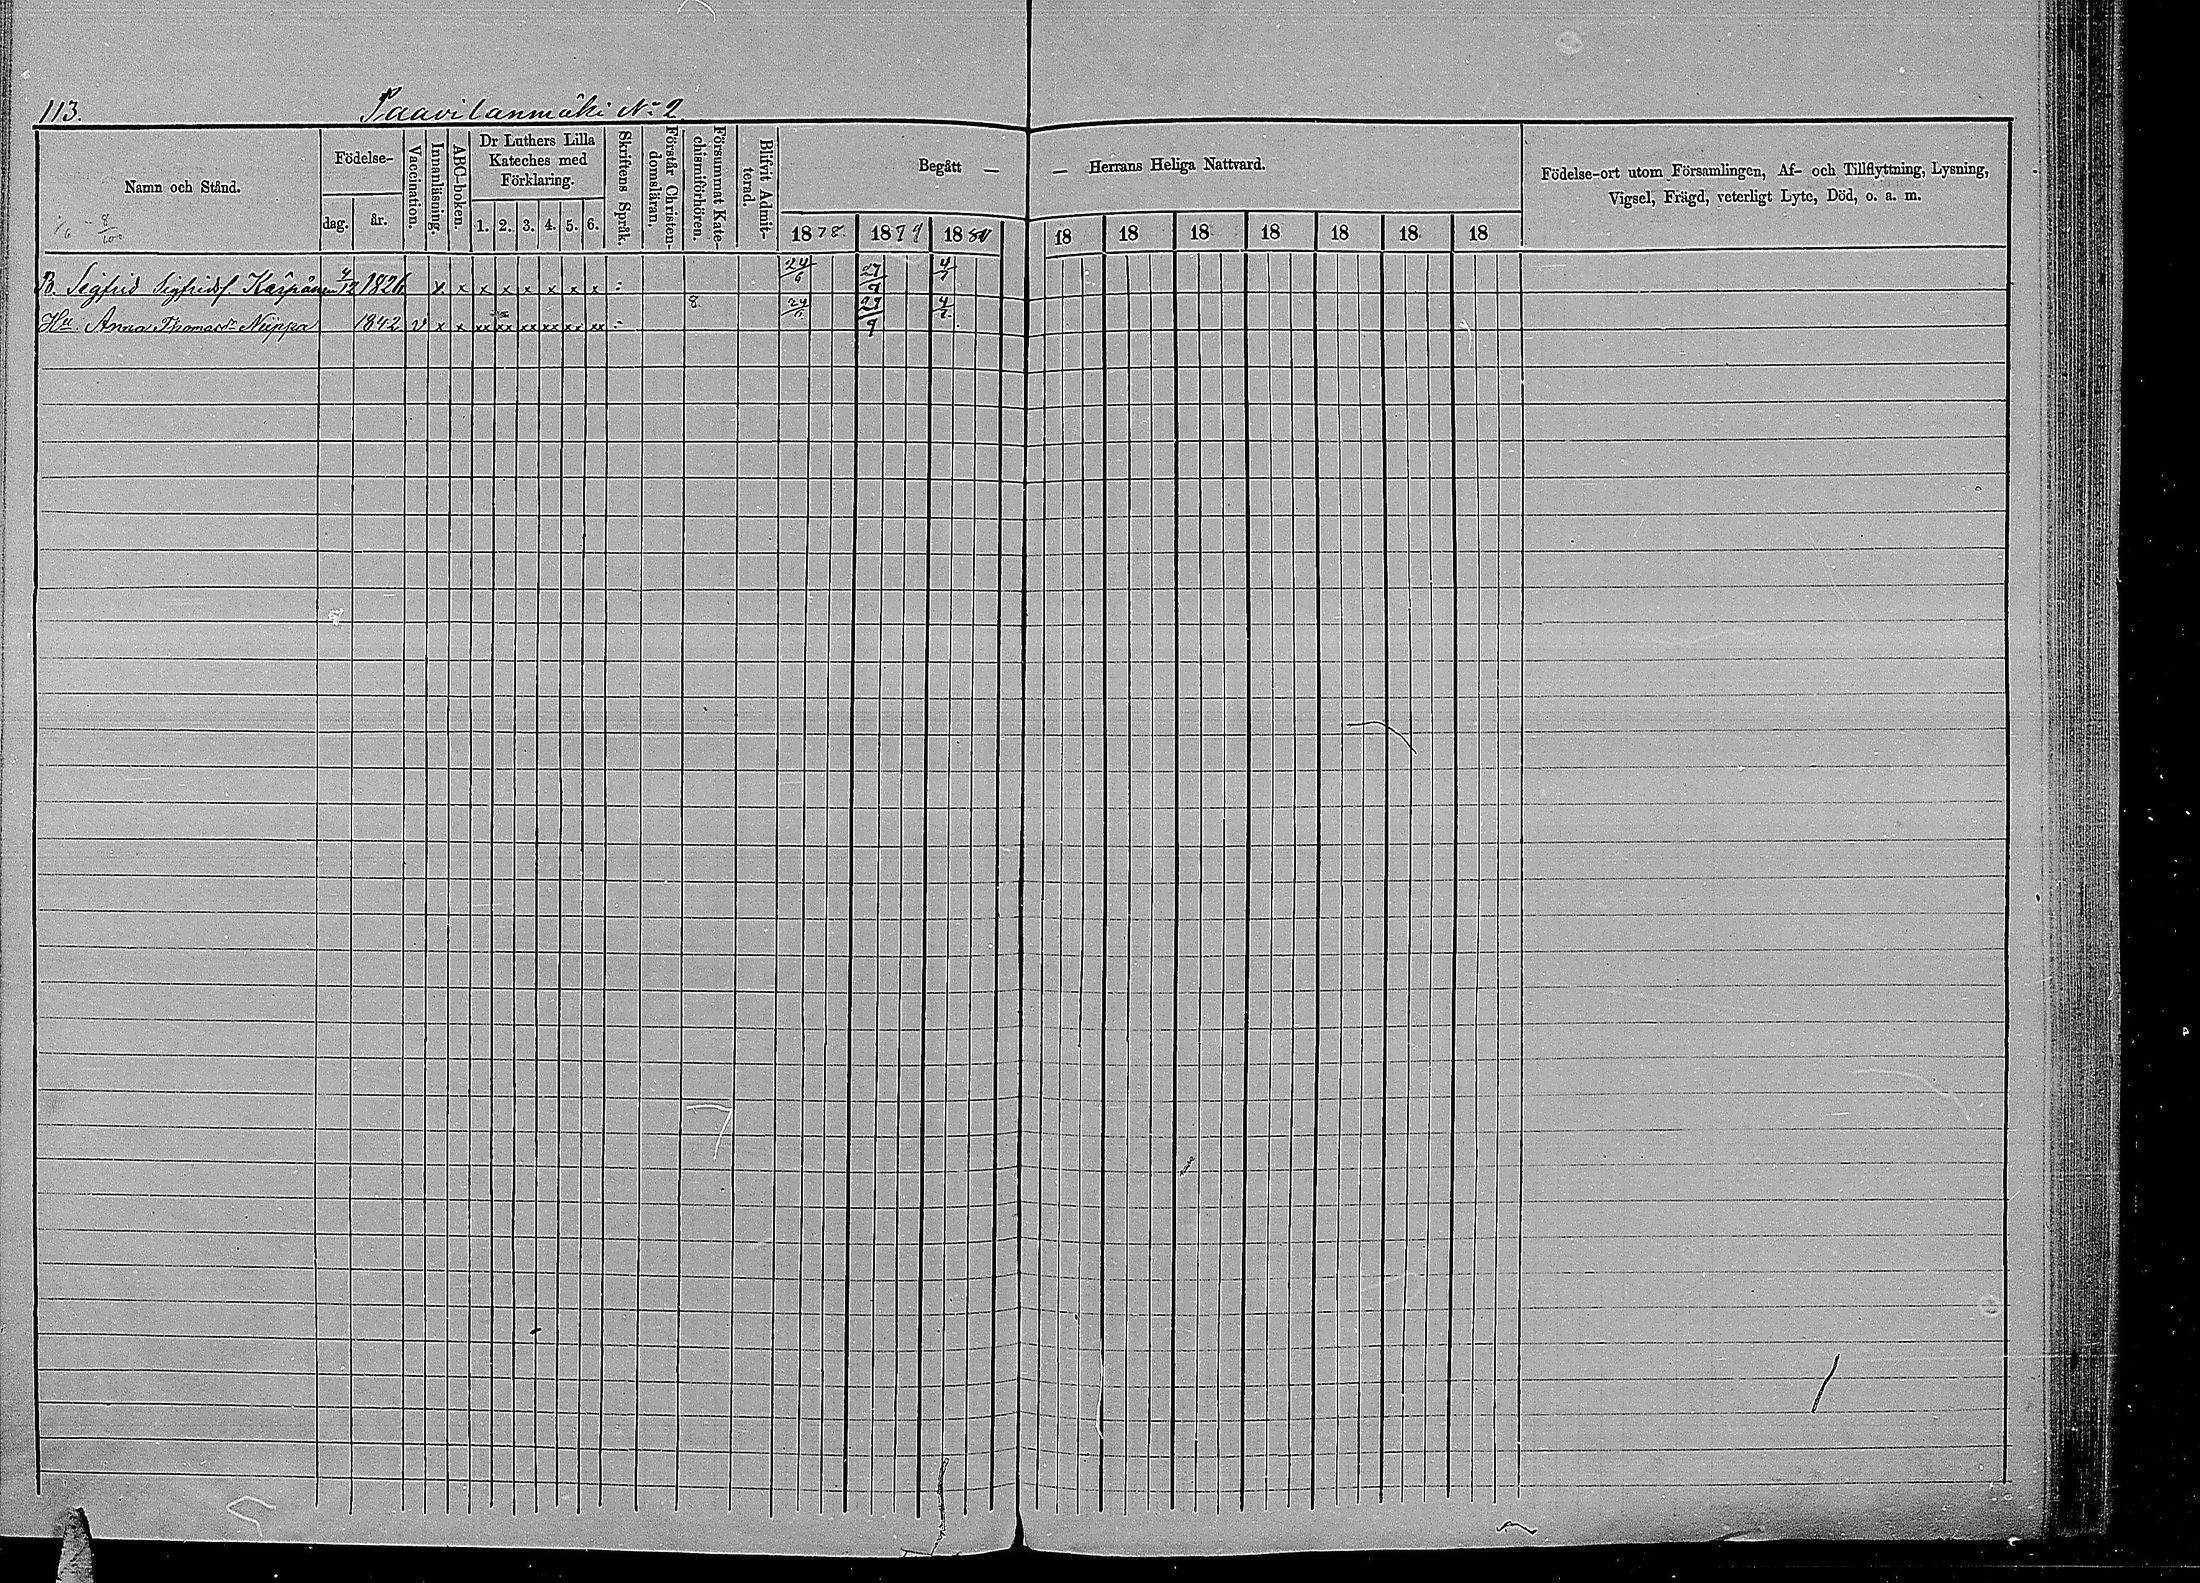 113. Paavilanmäki No 2
Namn och Stånd.
Födelse-
dag. år.
Vaccination.
Innanläsning.
ABC-boken.
Dr Luthers Lilla
Kateches med
Förklaring.
1. 2. 3. 4. 5. 6.
Skriftens Språk.
Förstår Christen-
domsläran.
Försummat Kate-
chismiförhören.
Blifvit Admit-
terad.
Begått — — Herrans Heliga Nattvard.
1878. 1879 1880 18 18 18 18 18 18 18
Födelse-ort utom Församlingen, Af- och Tillflyttning, Lysning,
Vigsel, Frägd, veterligt Lyte, Död, o. a. m.
B. Sigfrid Sigfridsf. Kärpänen 4/12 1826 x x x x x x x x : 24/6 27/7 4/7
Hu. Anna Thomasdr Niippa 1842 v x x xx xx xx xx xx xx : 8. 24/6 4/7